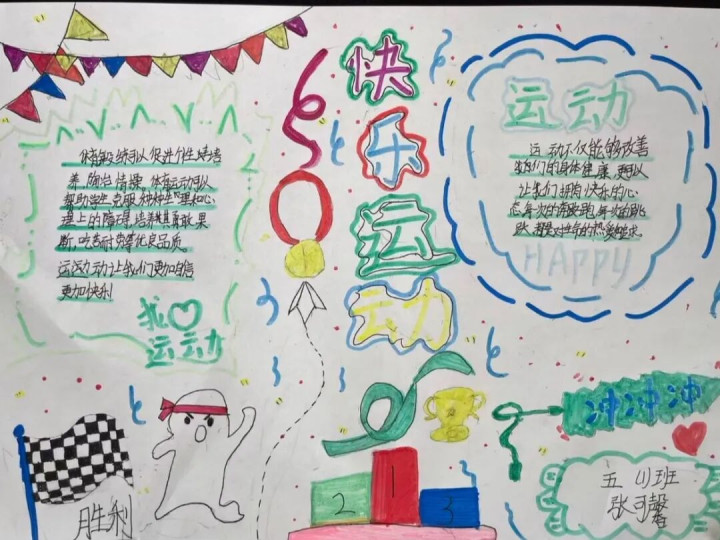 快
乐
运
动
体育锻练可以促进个性培培
养,陶冶情操,体育运动可以
帮助学生克服种种生理和心
理上的障碍培养其勇敢果
断,吃苦耐劳等优良品质
运运动动让我们更加自信
更加快利
我
运动
运动
运动不仅能够改善
我们的身体健康,更可以
让我们拥有快乐的心
态,每次的奔跑,每次的跳
跃,都是对生命的热爱
HAPPY
冲冲冲
2
1
3
胜利
五(1)班
张可馨